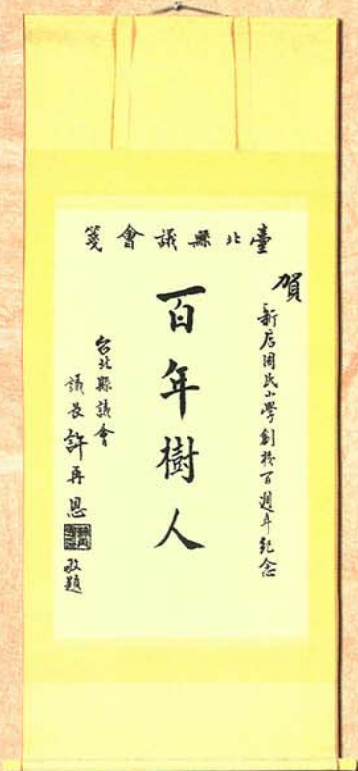 臺北縣議會箋
賀
新店國民小學創校百週年紀念
百年樹人
台北縣議會
議長許再恩
敬題